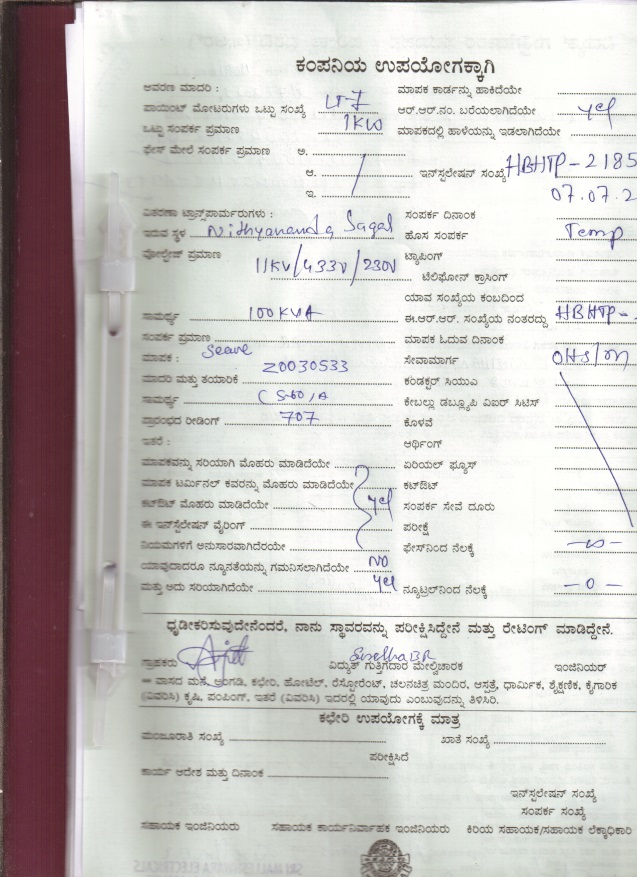 ಕಂಪನಿಯ ಉಪಯೋಗಕ್ಕಾಗಿ
ಆವರಣ ಮಾದರಿ : LT-7 ಮಾಪಕ ಕಾರ್ಡನ್ನು ಹಾಕಿದೆಯೇ
ಪಾಯಿಂಟ್ ಮೋಟರುಗಳು ಒಟ್ಟು ಸಂಖ್ಯೆ ಆರ್.ಆರ್.ನಂ. ಬರೆಯಲಾಗಿದೆಯೇ yes
ಒಟ್ಟು ಸಂಪರ್ಕ ಪ್ರಮಾಣ 1KW ಮಾಪಕದಲ್ಲಿ ಹಾಳೆಯನ್ನು ಇಡಲಾಗಿದೆಯೇ
ಫೇಸ್ ಮೇಲೆ ಸಂಪರ್ಕ ಪ್ರಮಾಣ ಅ.
ಆ. ಇನ್‌ಸ್ಟಲೇಷನ್ ಸಂಖ್ಯೆ HBHTP-2185
ಇ. 07.07.2
ವಿತರಣಾ ಟ್ರಾನ್ಸ್‌ಪಾರ್ಮರುಗಳು : ಸಂಪರ್ಕ ದಿನಾಂಕ
ಇರುವ ಸ್ಥಳ Nithyananda Sagar ಹೊಸ ಸಂಪರ್ಕ Temp
ವೋಲ್ಟೇಜ್ ಪ್ರಮಾಣ 11KV/433V/230V ಟ್ಯಾಪಿಂಗ್
ಟೆಲಿಫೋನ್ ಕ್ರಾಸಿಂಗ್
ಯಾವ ಸಂಖ್ಯೆಯ ಕಂಬದಿಂದ
ಸಾಮರ್ಥ್ಯ 100KVA ಈ.ಆರ್.ಆರ್. ಸಂಖ್ಯೆಯ ನಂತರದ್ದು HBHTP-
ಸಂಪರ್ಕ ಪ್ರಮಾಣ ಮಾಪಕ ಓದುವ ದಿನಾಂಕ
ಮಾಪಕ : Secure Z0030533 ಸೇವಾಮಾರ್ಗ OHS/
ಮಾದರಿ ಮತ್ತು ತಯಾರಿಕೆ ಕಂಡಕ್ಟರ್ ಸಿಯುಎ
ಸಾಮರ್ಥ್ಯ ಕೇಬಲ್ಲು ಡಬ್ಲ್ಯೂಪಿ ಎಐಆರ್ ಸಿಟಿಸ್
ಪ್ರಾರಂಭದ ರೀಡಿಂಗ್ 707 ಕೊಳವೆ
ಇತರೆ : ಅರ್ಥಿಂಗ್
ಮಾಪಕವನ್ನು ಸರಿಯಾಗಿ ಮೊಹರು ಮಾಡಿದೆಯೇ ಏರಿಯಲ್ ಫ್ಯೂಸ್
ಮಾಪಕ ಟರ್ಮಿನಲ್ ಕವರನ್ನು ಮೊಹರು ಮಾಡಿದೆಯೇ ಕಟ್‌ಔಟ್
ಕಟ್‌ಔಟ್ ಮೊಹರು ಮಾಡಿದೆಯೇ yes ಸಂಪರ್ಕ ಸೇವೆ ದೂರು
ಈ ಇನ್‌ಸ್ಟಲೇಷನ್ ವೈರಿಂಗ್ ಪರೀಕ್ಷೆ
ನಿಯಮಗಳಿಗೆ ಅನುಸಾರವಾಗಿದೆರಯೇ ಫೇಸ್‌ನಿಂದ ನೆಲಕ್ಕೆ
ಯಾವುದಾದರೂ ನ್ಯೂನತೆಯನ್ನು ಗಮನಿಸಲಾಗಿದೆಯೇ NO
ಮತ್ತು ಅದು ಸರಿಯಾಗಿದೆಯೇ yes ನ್ಯೂಟ್ರಲ್‌ನಿಂದ ನೆಲಕ್ಕೆ -0-
ಧೃಡೀಕರಿಸುವುದೇನೆಂದರೆ, ನಾನು ಸ್ಥಾವರವನ್ನು ಪರೀಕ್ಷಿಸಿದ್ದೇನೆ ಮತ್ತು ರೇಟಿಂಗ್ ಮಾಡಿದ್ದೇನೆ.
ಗ್ರಾಹಕರು ವಿದ್ಯುತ್ ಗುತ್ತಿಗೆದಾರ ಮೇಲ್ವಿಚಾರಕ ಇಂಜಿನಿಯರ್
** ವಾಸದ ಮನೆ, ಅಂಗಡಿ, ಕಛೇರಿ, ಹೋಟೆಲ್, ರೆಸ್ಟೋರೆಂಟ್, ಚಲನಚಿತ್ರ ಮಂದಿರ, ಆಸ್ಪತ್ರೆ, ಧಾರ್ಮಿಕ, ಶೈಕ್ಷಣಿಕ, ಕೈಗಾರಿಕ
(ವಿವರಿಸಿ) ಕೃಷಿ, ಪಂಪಿಂಗ್, ಇತರೆ (ವಿವರಿಸಿ) ಇದರಲ್ಲಿ ಯಾವುದು ಎಂಬುವುದನ್ನು ತಿಳಿಸಿರಿ.
ಕಛೇರಿ ಉಪಯೋಗಕ್ಕೆ ಮಾತ್ರ
ಮಂಜೂರಾತಿ ಸಂಖ್ಯೆ ಖಾತೆ ಸಂಖ್ಯೆ
ಪರೀಕ್ಷಿಸಿದೆ
ಕಾರ್ಯ ಆದೇಶ ಮತ್ತು ದಿನಾಂಕ
ಇನ್‌ಸ್ಟಲೇಷನ್ ಸಂಖ್ಯೆ
ಸಂಪರ್ಕ ಸಂಖ್ಯೆ
ಸಹಾಯಕ ಇಂಜಿನಿಯರು ಸಹಾಯಕ ಕಾರ್ಯನಿರ್ವಾಹಕ ಇಂಜಿನಿಯರು ಕಿರಿಯ ಸಹಾಯಕ/ಸಹಾಯಕ ಲೆಕ್ಕಾಧಿಕಾರಿ